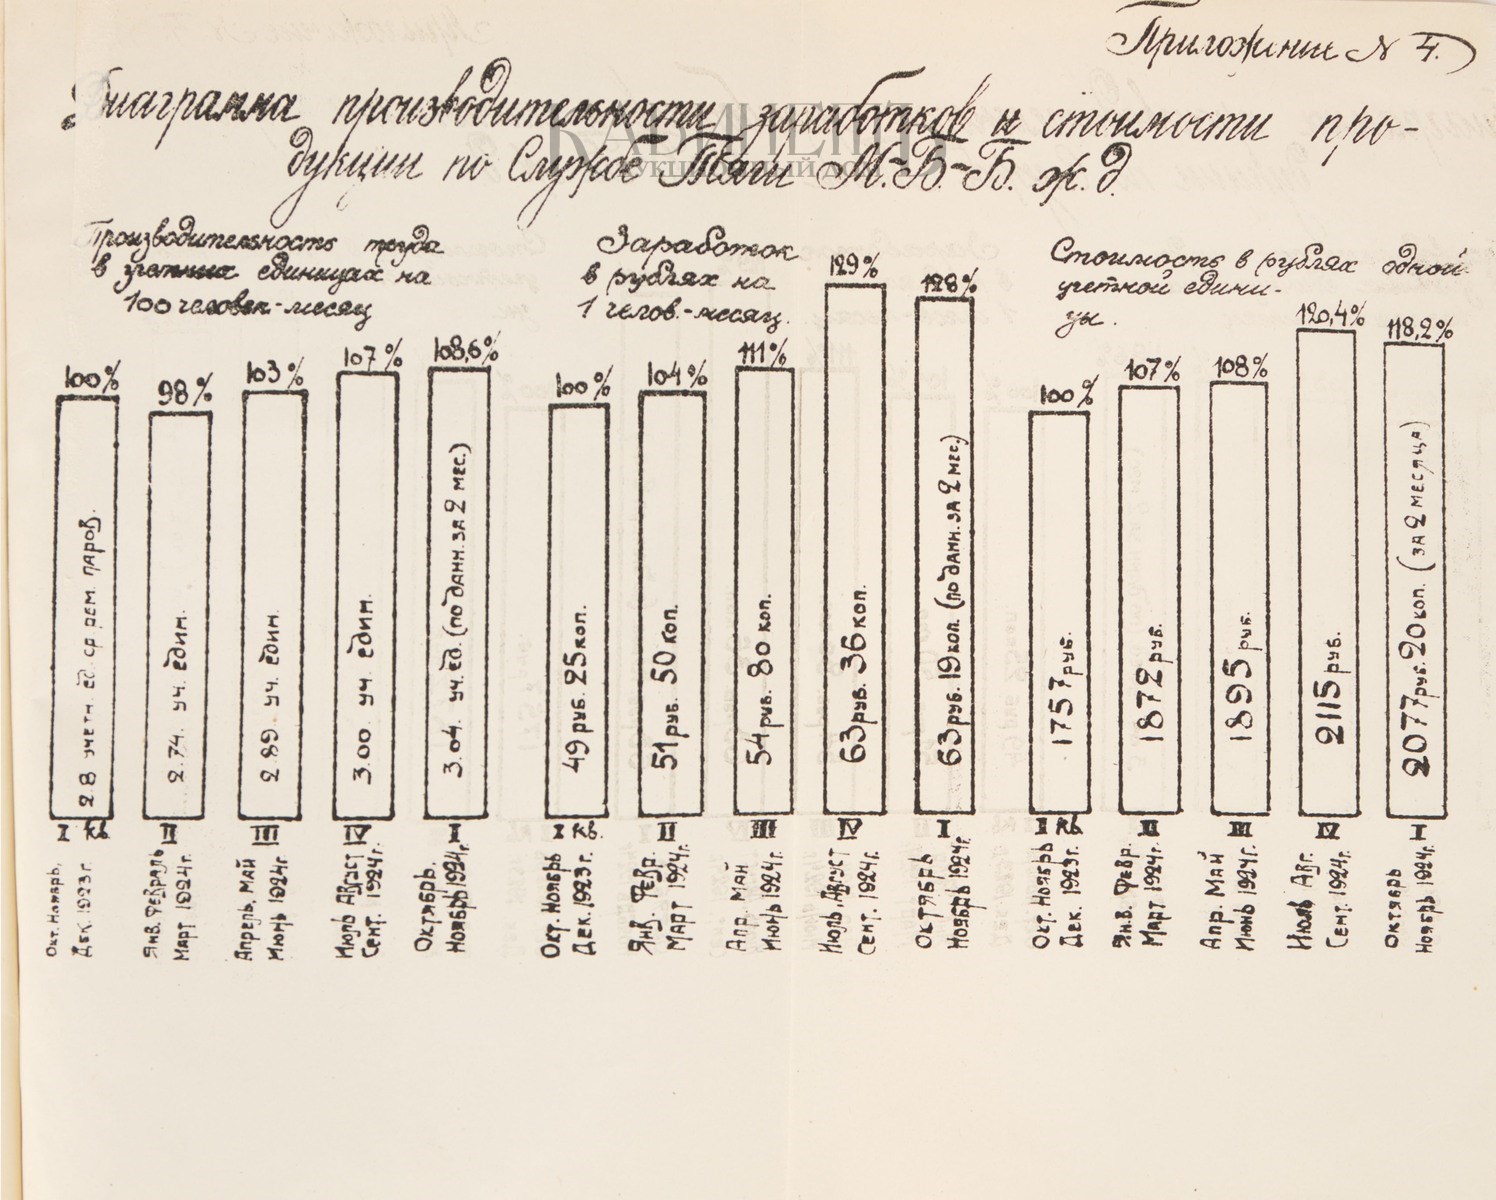 Приложение № 4.
Диаграмма производительности заработков и стоимости про-
дукции по Службе Тяги М.-Б.-Б. ж.д.
КАБИНЕТЪ
АУКЦИОННЫЙ ДОМ
Производительность труда
в учетных единицах на
100 человек-месяц
100%
98%
103%
107%
108,6%
28 учетн. ед. ср рем. паров.
2.74. уч. един.
2.89. уч. един.
3.00 уч. един.
3.04. уч. ед. (по данн. за 2 мес.)
I кв.
II
III
IV
I
Окт. Ноябрь,
Дек. 1923г.
Янв. Февраль
Март 1924г.
Апрель, Май
Июнь 1924г
Июль Август
Сент. 1924г.
Октябрь.
Ноябрь 1924г.
Заработок
в рублях на
1 челов.-месяц.
100%
104%
111%
129%
128%
49 руб. 25 коп.
51 руб. 50 коп.
54 руб. 80 коп.
63 руб. 36 коп.
63 руб. 19 коп. (по данн. за 2 мес.)
I кв.
II
III
IV
I
Окт. Ноябрь
Дек. 1923г.
Янв. Февр.
Март 1924г.
Апр. Май
Июнь 1924г.
Июль, Август
Сент. 1924г.
Октябрь
Ноябрь 1924г.
Стоимость в рублях одной
учетной едини-
цы.
100%
107%
108%
120,4%
118,2%
1757 руб.
1872 руб.
1895 руб.
2115 руб.
2077 руб. 20 коп. (за 2 месяца)
I кв.
II
III
IV
I
Окт. Ноябрь
Дек. 1923г.
Янв. Февр.
Март 1924г.
Апр. Май
Июнь 1924г.
Июль Авг.
Сент. 1924г.
Октябрь
Ноябрь 1924г.